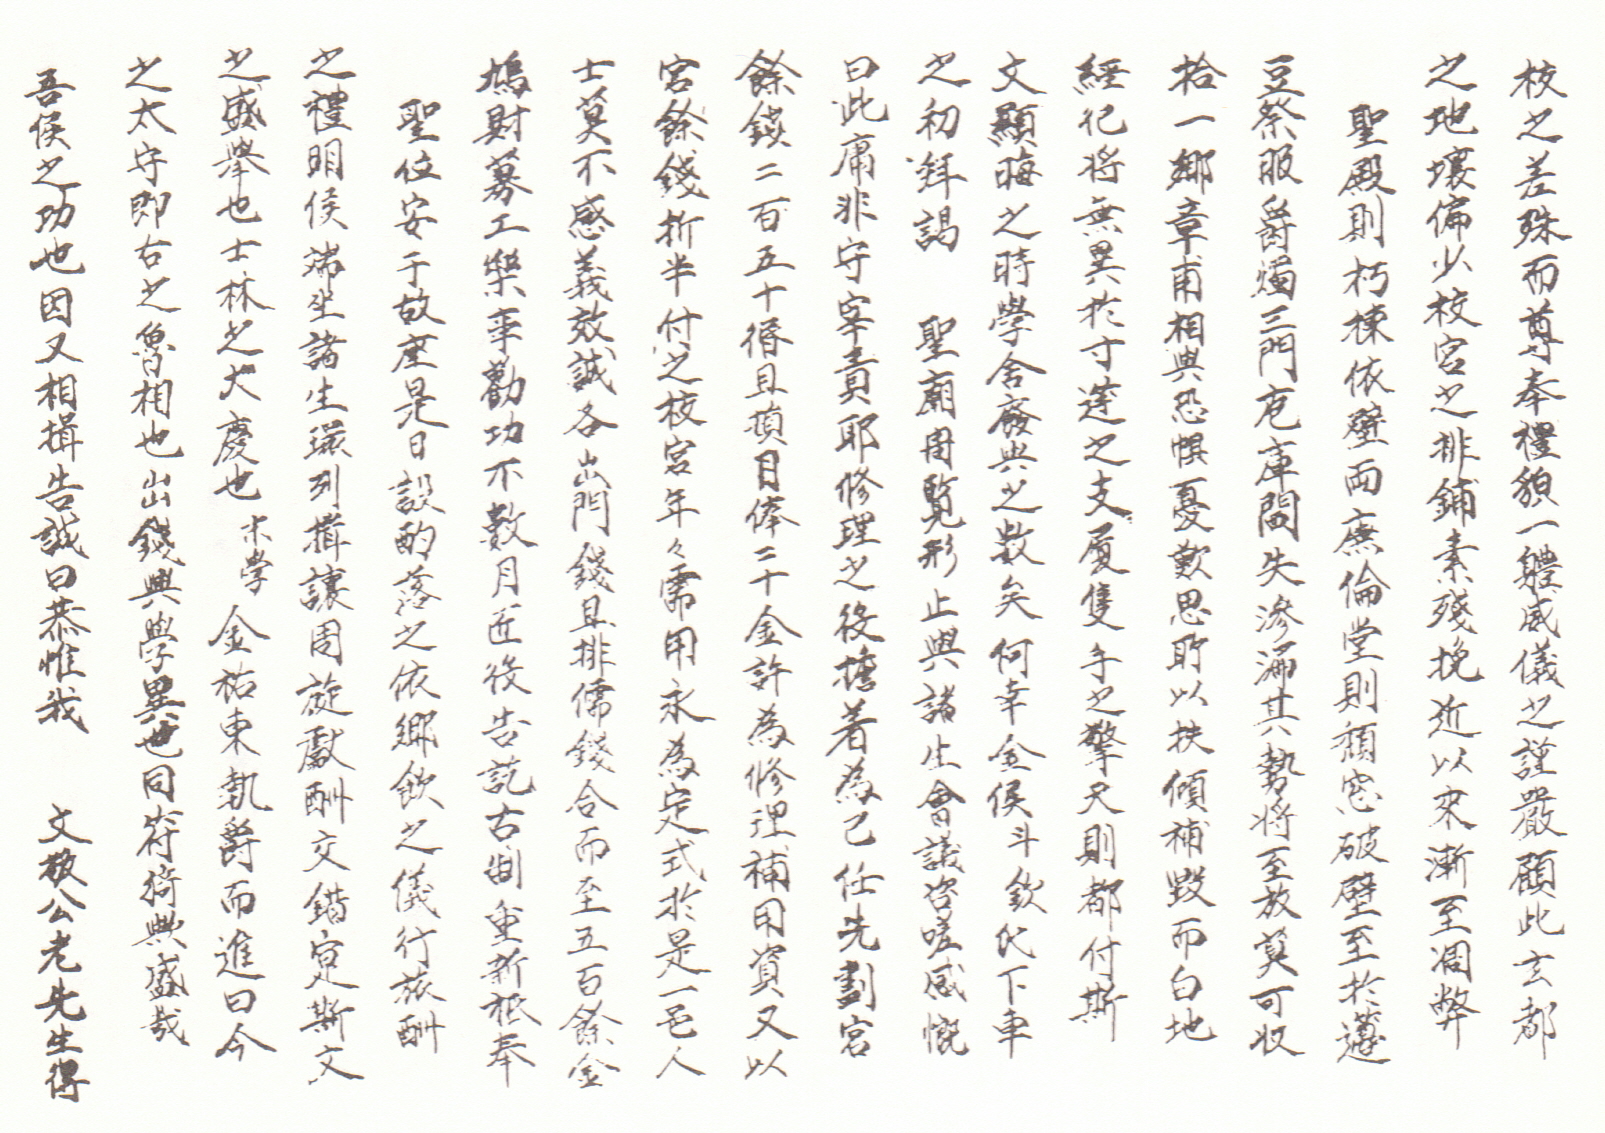 校之差殊而尊奉禮貌一體威儀之謹嚴顧此玄都
之地壤偏少校宮之排鋪素殘挽近以來漸至凋弊
聖殿則朽棟依壁兩廡倫堂則頹窓破壁至於籩
豆祭服爵燭三門庖庫閣失滲漏其勢將至放莫可收
拾一鄕章甫相與恐惧憂歎思所以扶傾補毀而白地
經紀將無異於寸筳之支廈隻手之擎天則都付斯
文顯晦之時學舍廢興之數矣何幸金侯斗欽氏下車
之初拜謁 聖廟周覽形止與諸生會議咨嗟感慨
曰此庸非守宰責耶修理之役擔着爲己任先劃宮
餘錢二百五十緡且損自俸二十金許爲修理補用資又以
宮餘錢折半付之校宮年々需用永爲定式於是一邑人
士莫不感義效誠各出門錢且排儒錢合而至五百餘金
鳩財募工樂事勸功不數月匠役告訖古制重新祗奉
聖位安于故座是日設酌落之依鄕飮之儀行旅酬
之禮明侯端坐諸生環列揖讓周旋獻酬交錯寔斯文
之盛擧也士林之大慶也末學金祐東執爵而進曰今
之太守卽古之魯相也出錢興學異世同符猗歟盛哉
吾侯之功也因又相揖告誠曰恭惟我 文敬公老先生得